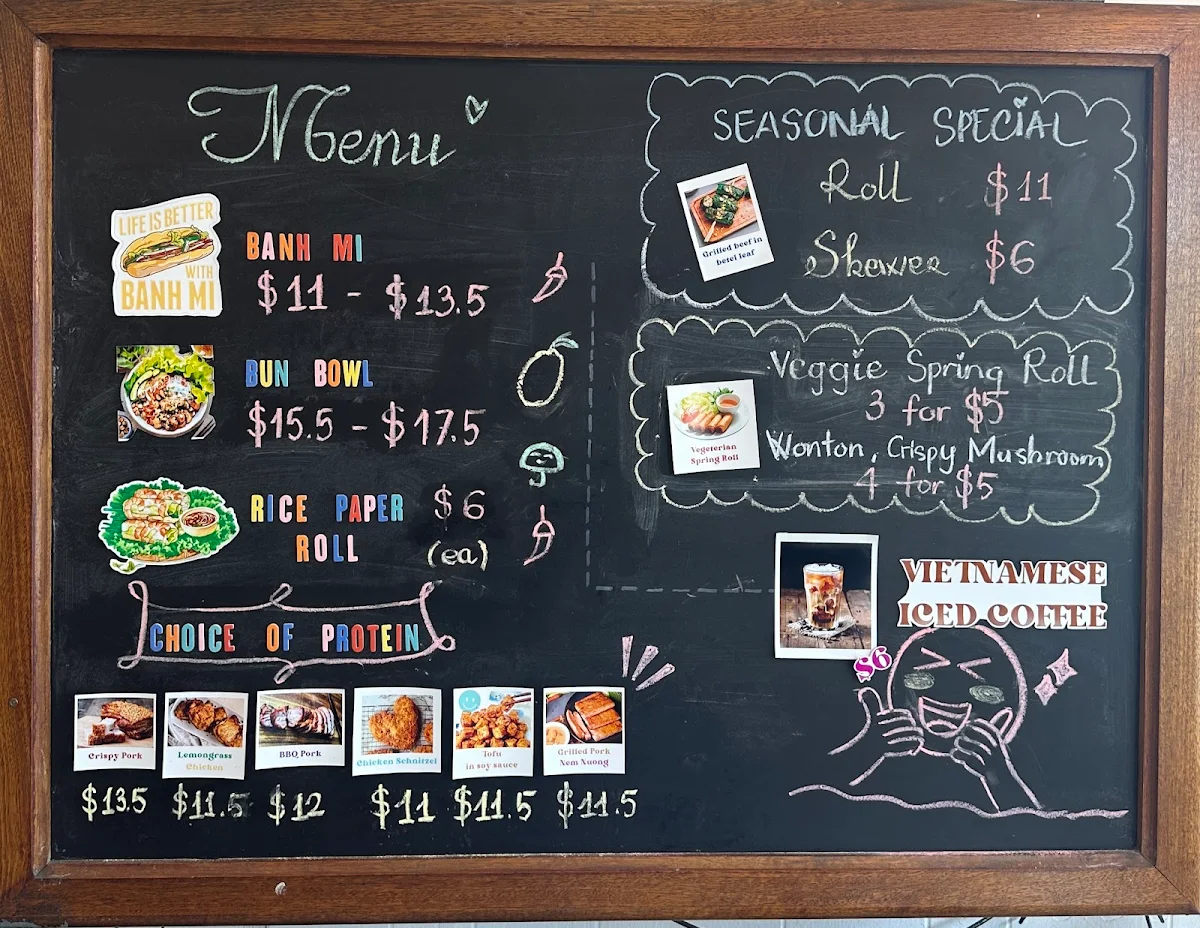 Menu
LIFE IS BETTER
WITH
BANH MI
BANH MI
$11 - $13.5
BUN BOWL
$15.5 - $17.5
RICE PAPER $6
ROLL (ea)
CHOICE OF PROTEIN
Crispy Pork
Lemongrass
Chicken
BBQ Pork
Chicken Schnitzel
Tofu
in soy sauce
Grilled Pork
Nem Nuong
$13.5 $11.5 $12 $11 $11.5 $11.5
SEASONAL SPECIAL
Grilled beef in
betel leaf
Roll $11
Skewer $6
Vegeterian
Spring Roll
Veggie Spring Roll
3 for $5
Wonton, Crispy Mushroom
4 for $5
VIETNAMESE
ICED COFFEE
$6